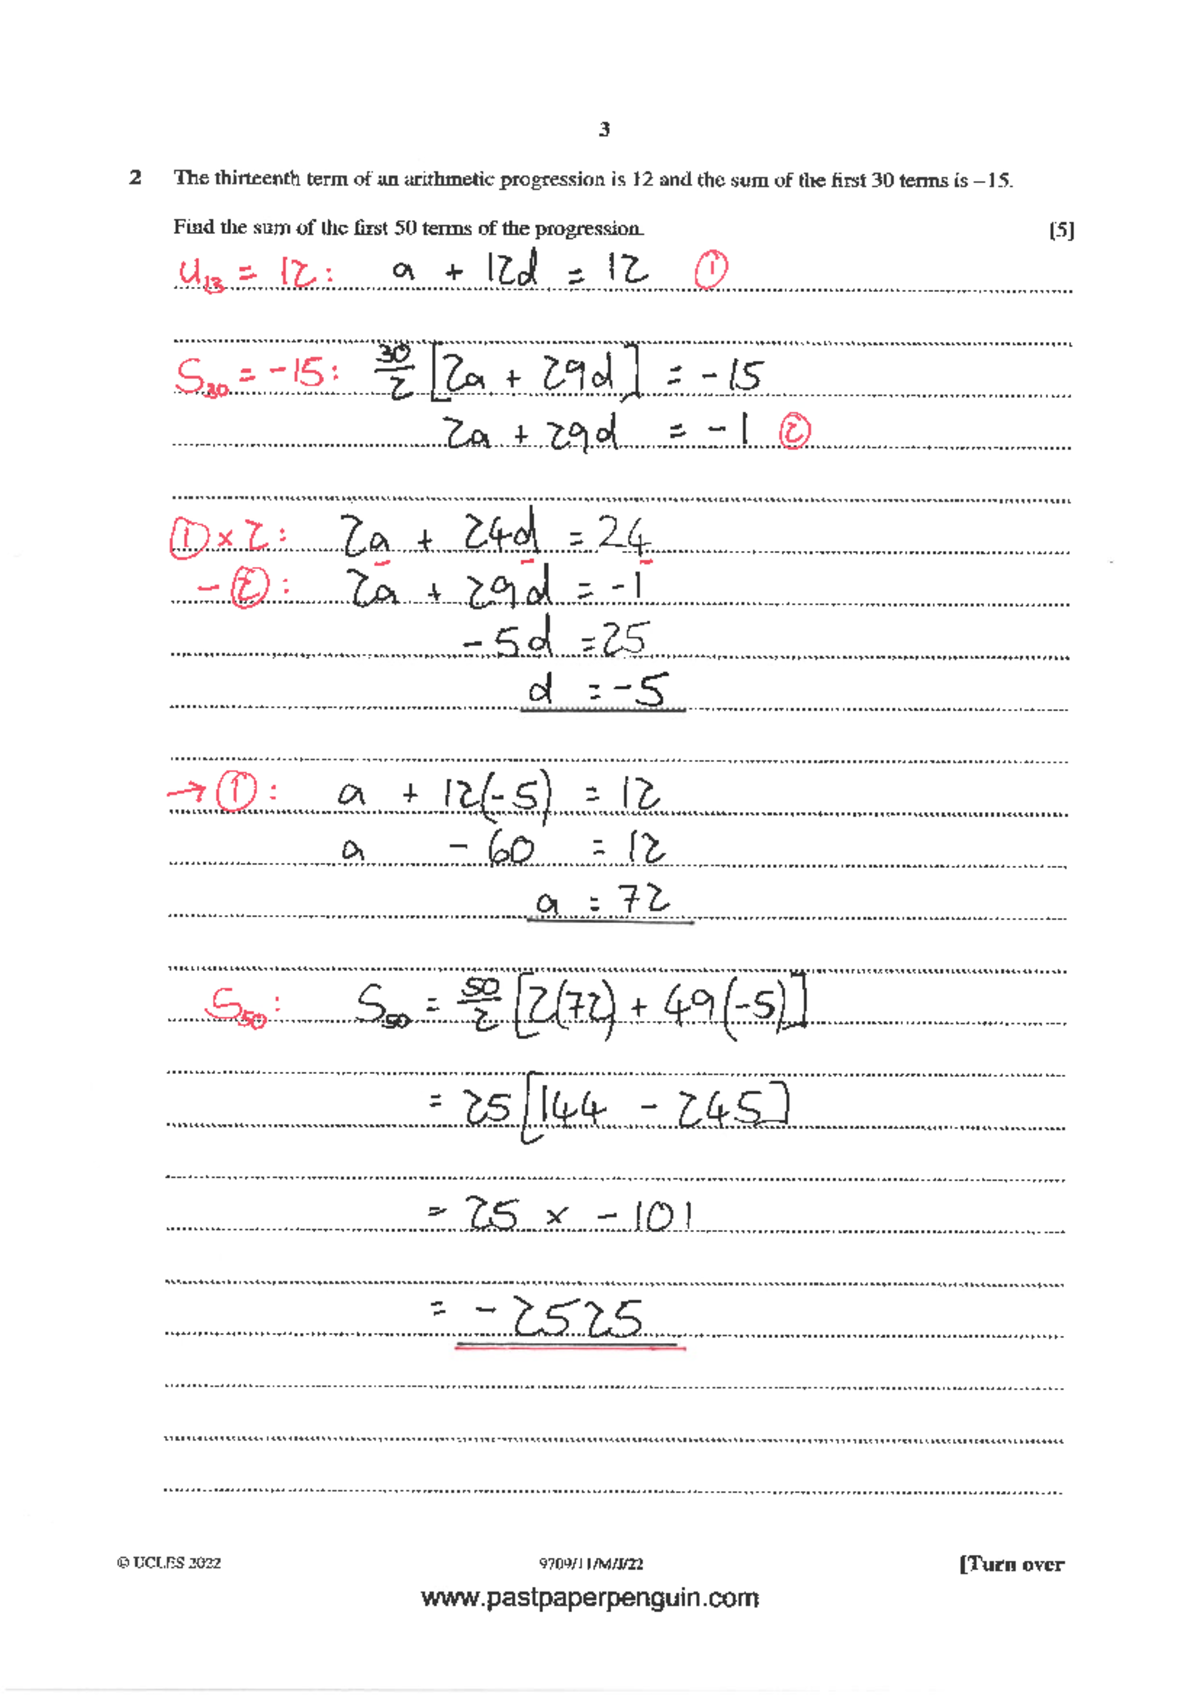 3
2 The thirteenth term of an arithmetic progression is 12 and the sum of the first 30 terms is −15.
Find the sum of the first 50 terms of the progression. [5]
u₁₃ = 12: a + 12d = 12 ①
S₃₀ = -15: 30/2 [2a + 29d] = -15
2a + 29d = -1 ②
① × 2: 2a + 24d = 24
- ②: 2a + 29d = -1
-5d = 25
d = -5
→ ①: a + 12(-5) = 12
a - 60 = 12
a = 72
S₅₀: S₅₀ = 50/2 [2(72) + 49(-5)]
= 25[144 - 245]
= 25 × -101
= -2525
© UCLES 2022 9709/11/M/J/22 [Turn over
www.pastpaperpenguin.com